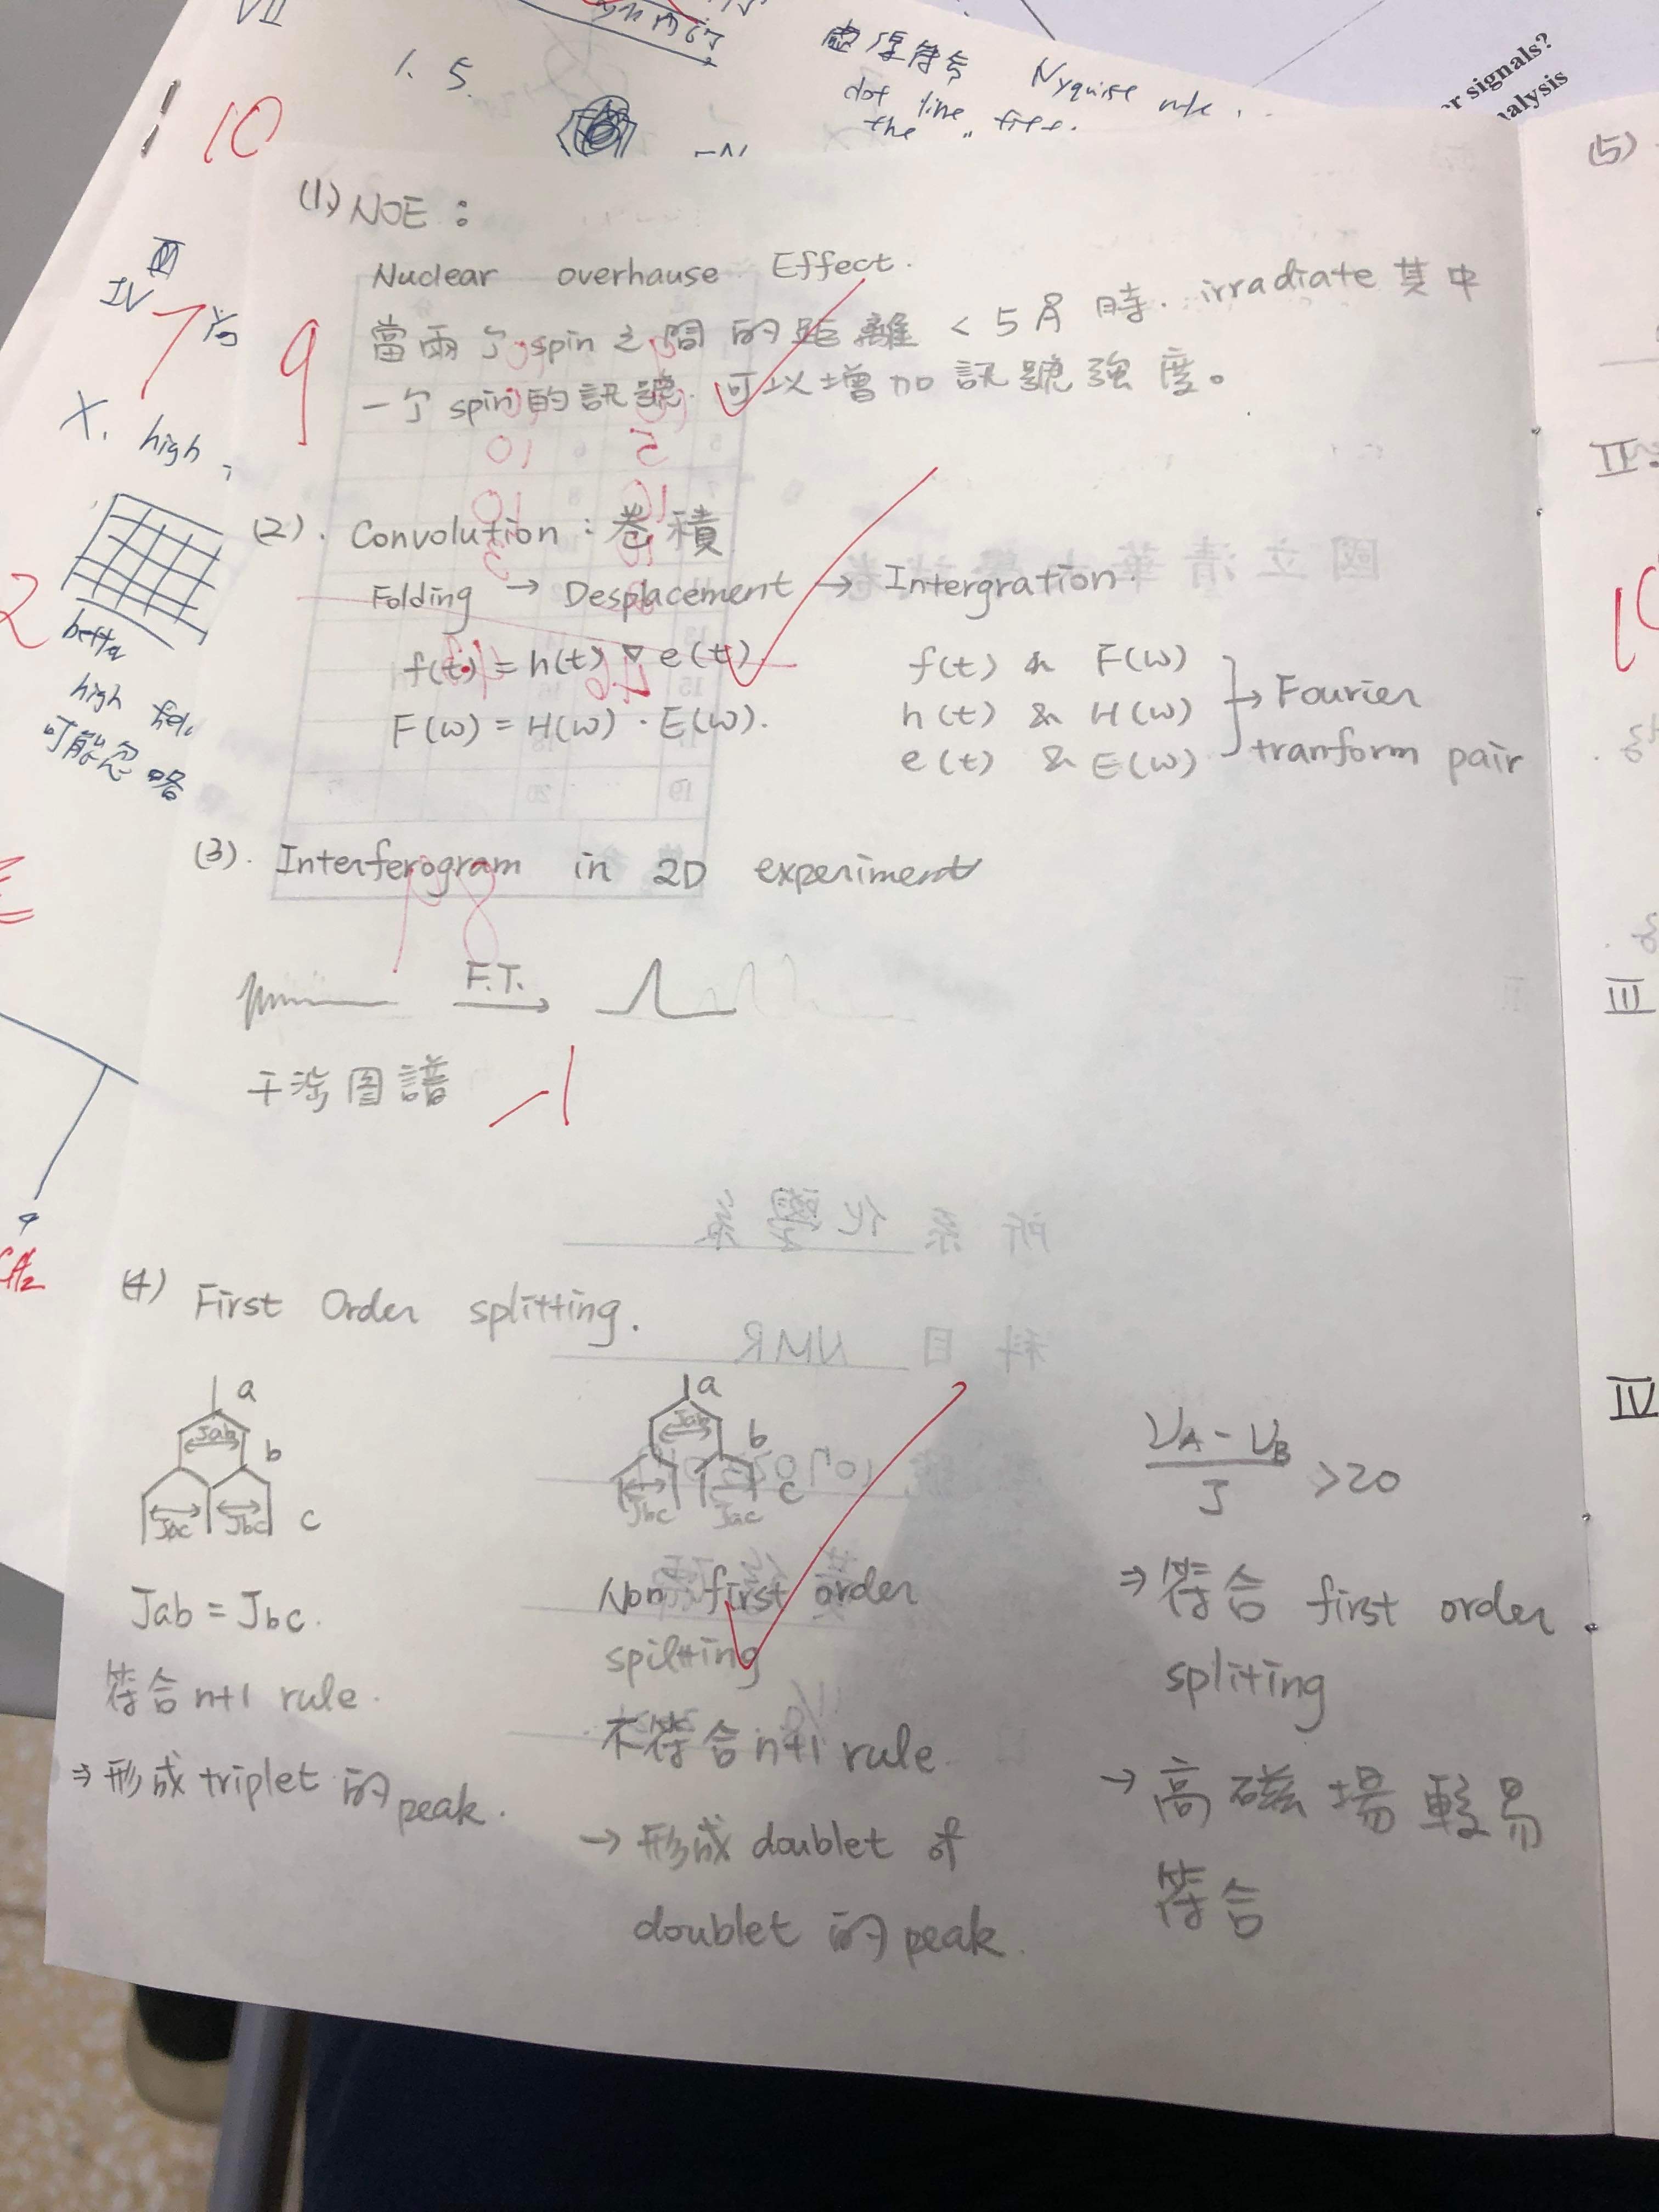 VII
1. 5.
Nyquise rule.
dot line
the " free.
r signals?
alysis
10
(5)
(1) NOE：
Nuclear overhause Effect.
當兩个 spin 之間的距離 < 5Å 時. irradiate 其中
一个 spin 的訊號. 可以增加訊號強度。
9
III
IV
X. high,
better
high field
可能忽略
2
(2). Convolution：卷積
Folding → Desplacement → Intergration.
f(t) = h(t) ▽ e(t)
F(ω) = H(ω) · E(ω).
f(t) & F(ω)
h(t) & H(ω)
e(t) & E(ω)
→ Fourier
tranform pair
(3). Interferogram in 2D experiment
F.T.
干涉图譜
-1
(4) First Order splitting.
a
Jab
b
Jbc Jbc c
Jab = Jbc.
符合 n+1 rule.
⇒ 形成 triplet 的 peak.
a
Jab
b
Jbc Jac c
Non first order
spiltting
不符合 n+1 rule.
→ 形成 doublet of
doublet 的 peak.
νA - νB
J
>20
⇒ 符合 first order
spliting
→ 高磁場較易
符合
II.
10
III
IV